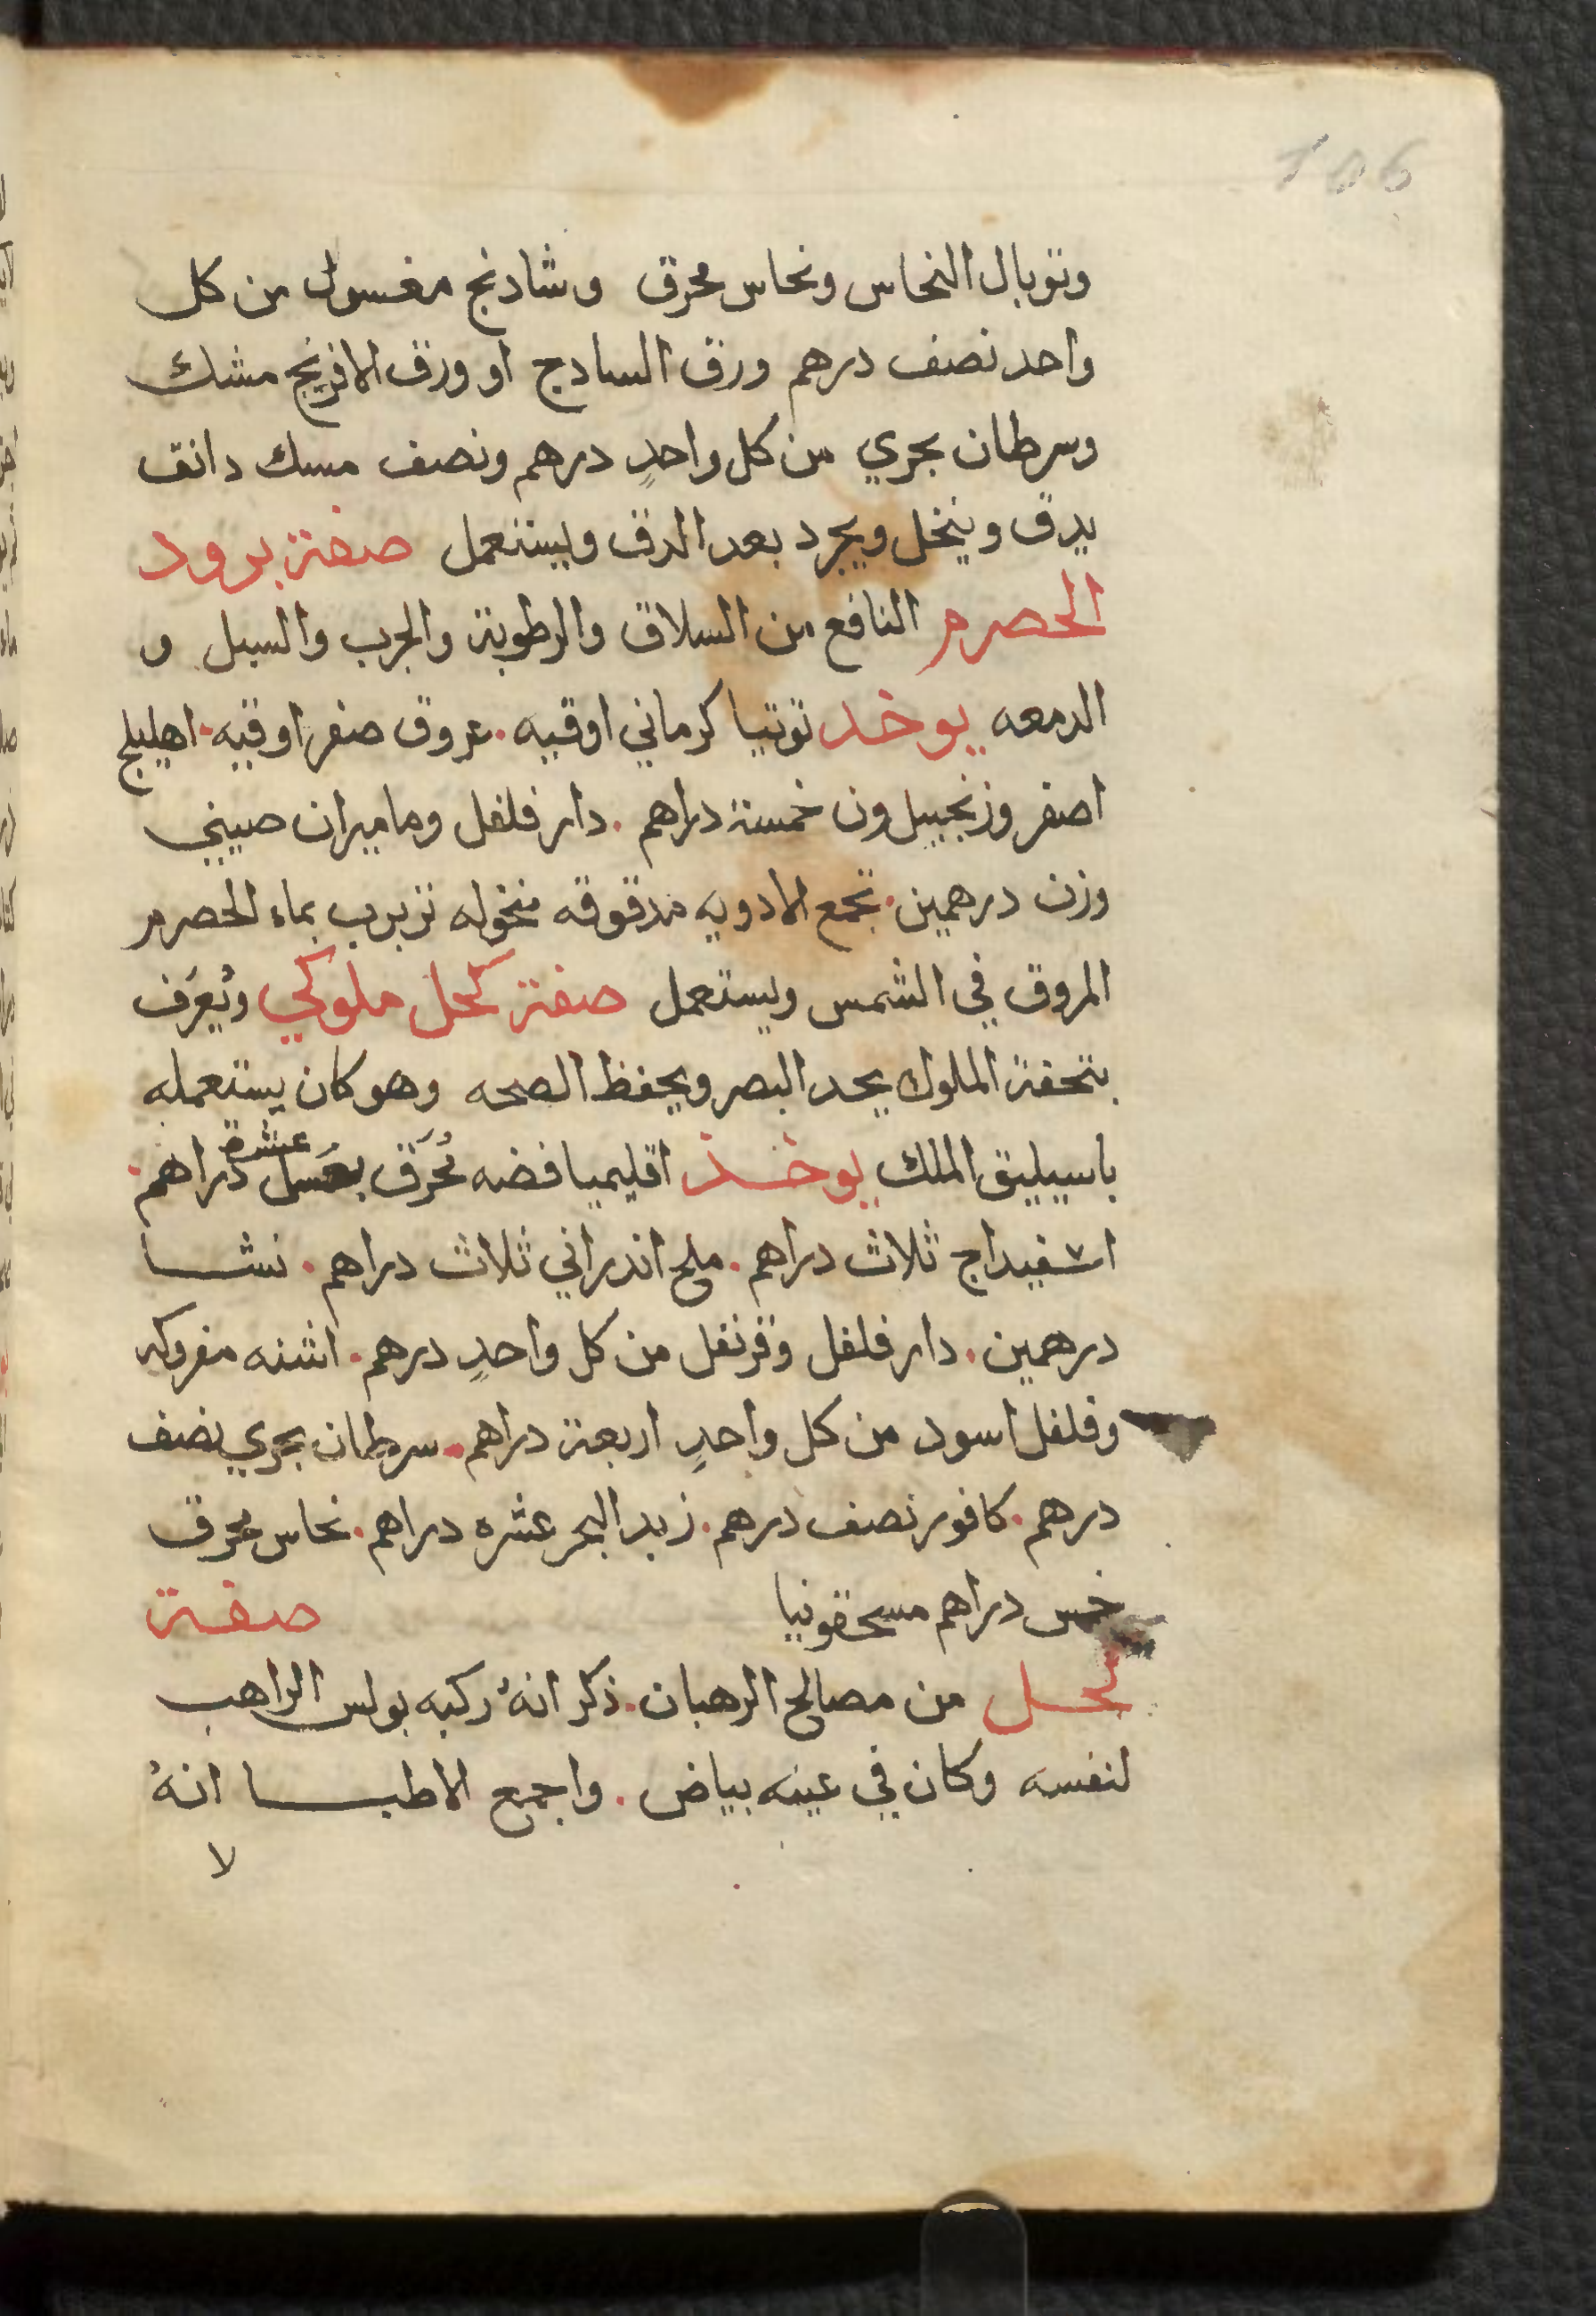 106
وتوبال النحاس ونحاس محرق وشادنج مغسول من كل
واحد نصف درهم ورق السادج او ورق الافرنج مشك
وسرطان بحري من كل واحدٍ درهم ونصف مسك دانق
يدق وينخل ويجرد بعد الدق ويستعمل صفة برود
الحصرم النافع من السلاق والرطوبة والجرب والسبل و
الدمعه يوخد توتيا كرماني اوقيه. عروق صفر اوقيه. اهليلج
اصفر وزنجبيل ون خمسة دراهم. دار فلفل وماميران صيني
وزن درهمين. تجمع الادويه مدقوقه منخوله تربرب بماء الحصرم
المروق في الشمس ويستعمل صفة كحل ملوكي ويُعرَف
بتحفة الملوك يحد البصر ويحفظ الصحه وهو كان يستعمله
باسيليق الملك يوخذ اقليميا فضه مُحرَق بعَسل عشرة دراهم.
اسفيداج ثلاث دراهم. ملح اندراني ثلاث دراهم. نشا
درهمين. دار فلفل وقرنفل من كل واحدٍ درهم. اشنه مفروكه
وفلفل اسود من كل واحدٍ اربعة دراهم. سرطان بحري نصف
درهم. كافور نصف درهم. زبد البحر عشره دراهم. نحاس محرق
خمس دراهم مسحقونيا صفة
كحل من مصالح الرهبان. ذكر انهُ ركبه بولس الراهب
لنفسه وكان في عينه بياض. واجمع الاطبا انهُ
لا